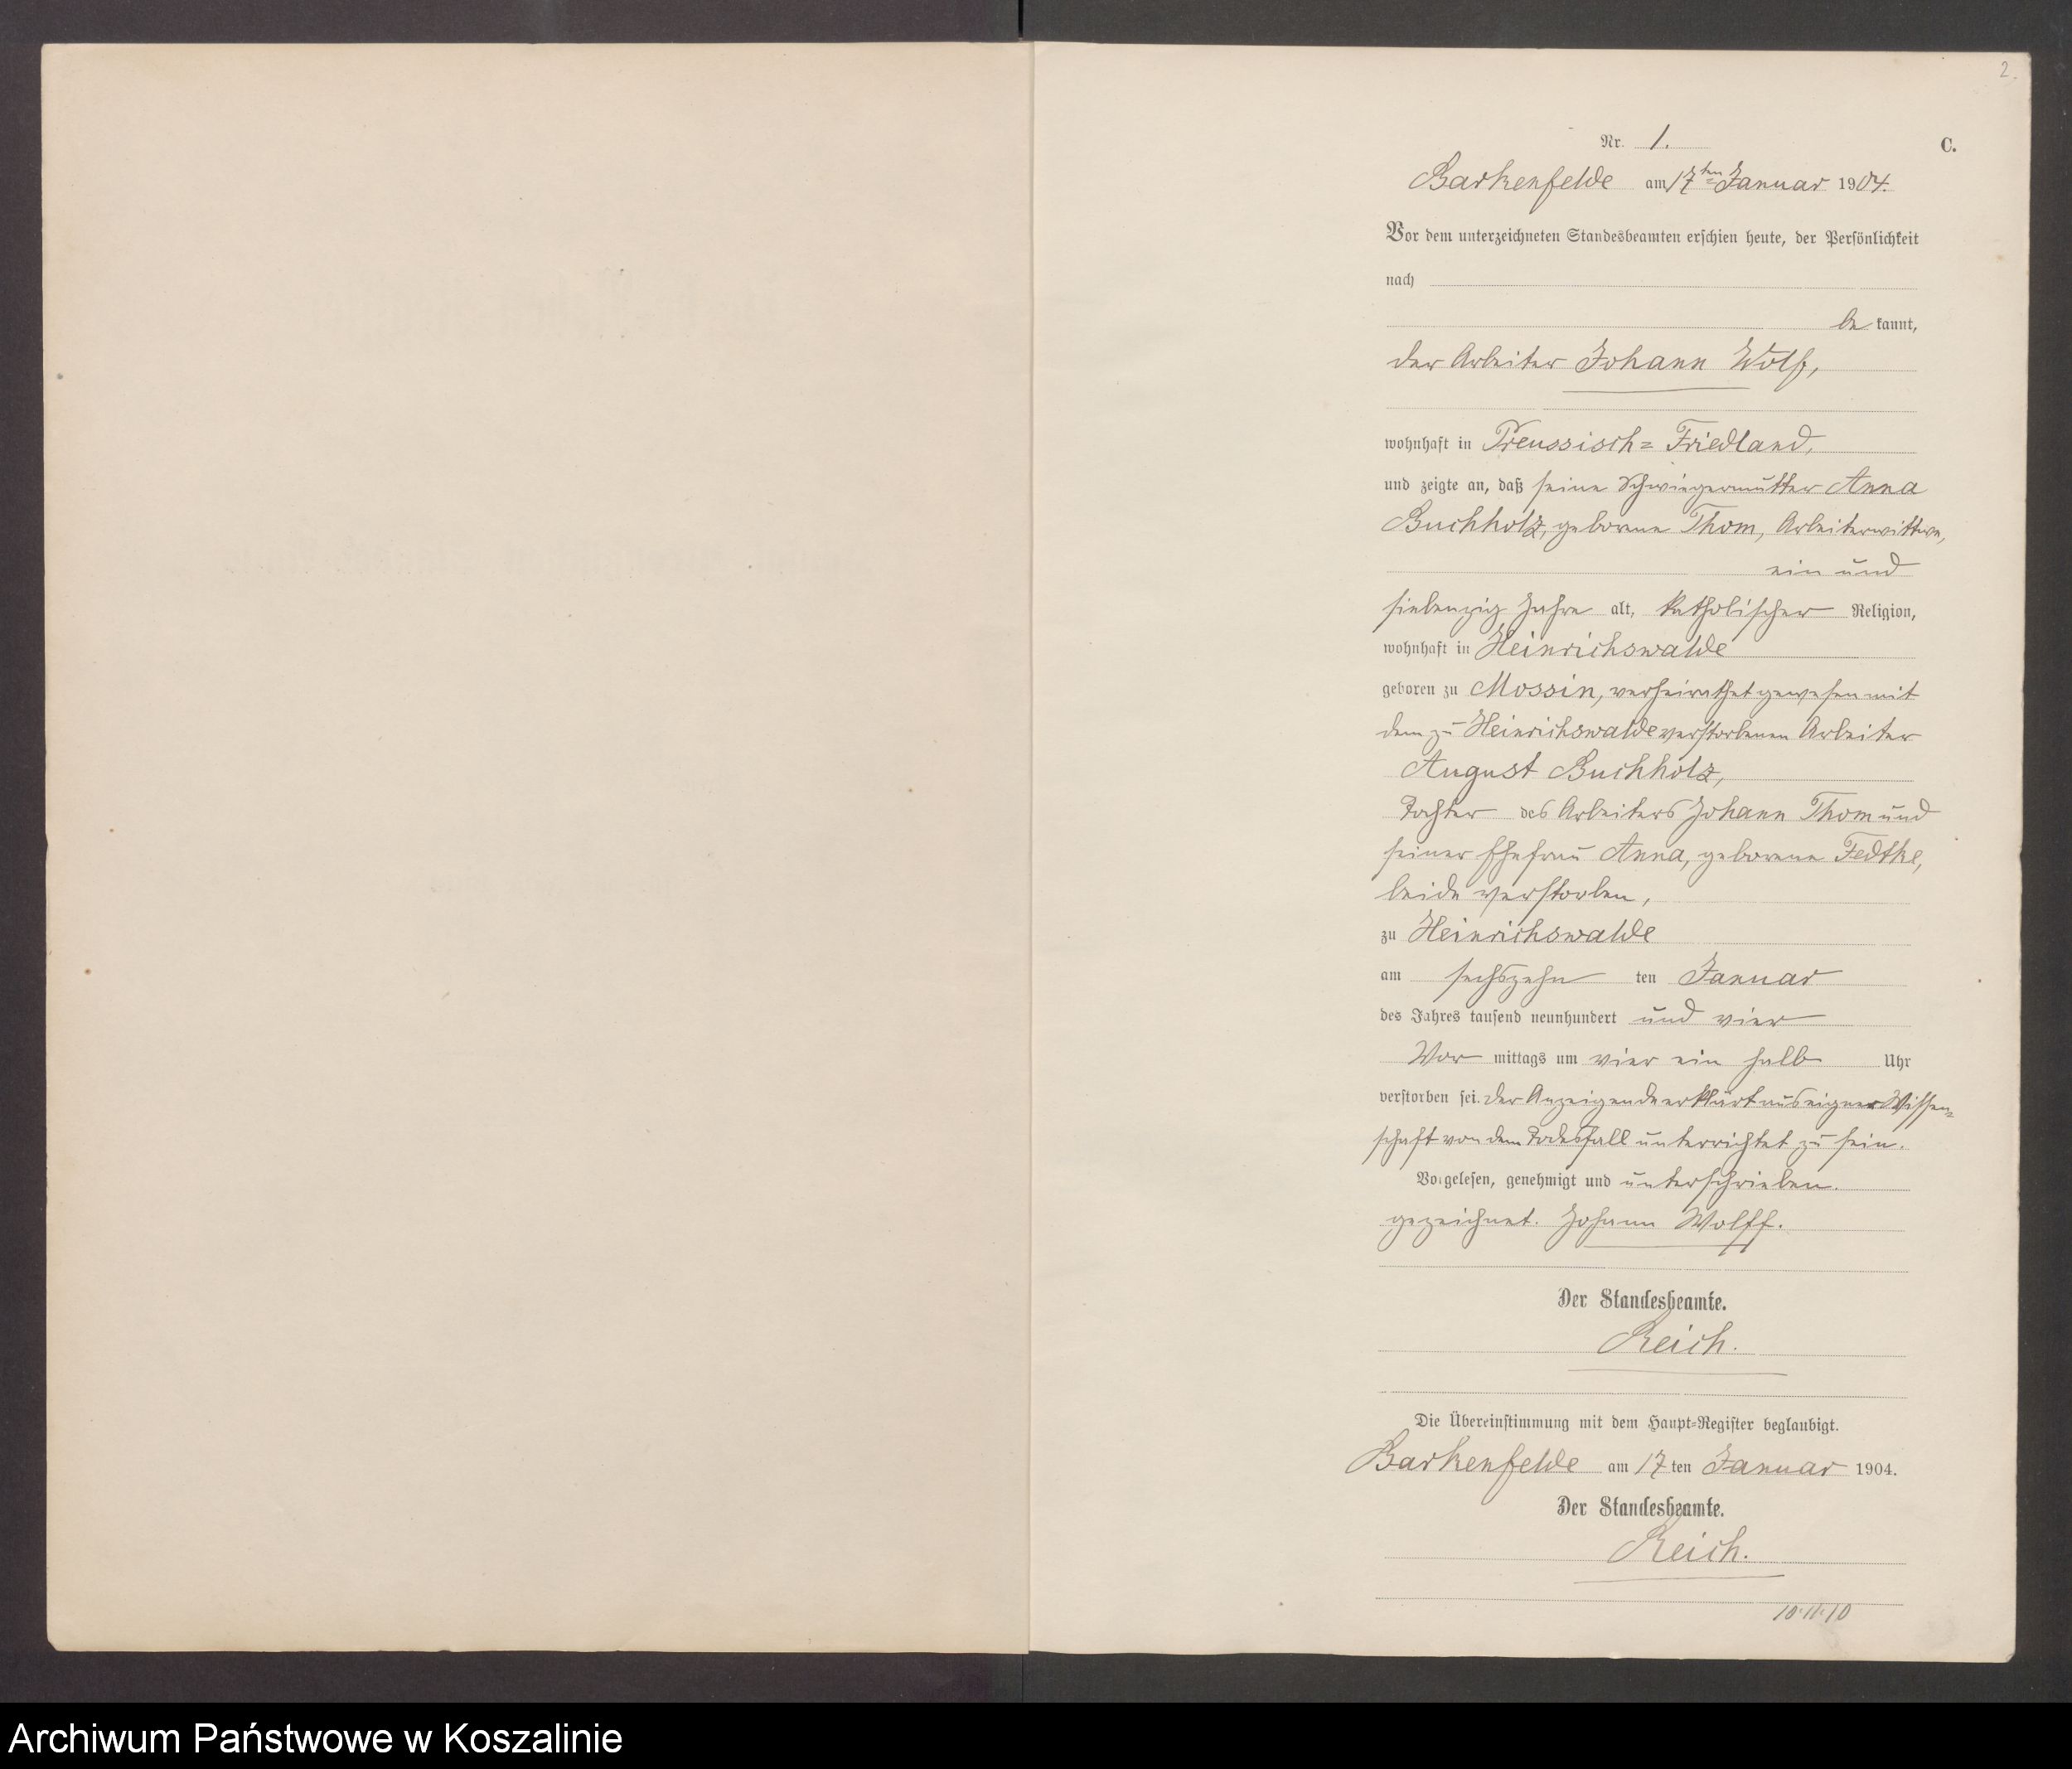 2.
Nr. 1.
C.
Barkenfelde am 17ten Januar 1904.
Vor dem unterzeichneten Standesbeamten erschien heute, der Persönlichkeit
nach
be kannt,
der Arbeiter Johann Wolf,
wohnhaft in Preussisch= Friedland,
und zeigte an, daß seine Schwiegermutter Anna
Buchholz, geborene Thom, Arbeiterwittwe,
ein und
siebenzig Jahre alt, katholischer Religion,
wohnhaft in Heinrichswalde
geboren zu Mossin, verheirathet gewesen mit
dem zu Heinrichswalde verstorbenen Arbeiter
August Buchholz,
Tochter des Arbeiters Johann Thom und
seiner Ehefrau Anna, geborene Fedtke,
beide verstorben,
zu Heinrichswalde
am sechszehn ten Januar
des Jahres tausend neunhundert und vier
Vor mittags um vier ein halb Uhr
verstorben sei. Der Anzeigende erklärt aus eigner Wissen=
schaft von dem Todesfall unterrichtet zu sein.
Vorgelesen, genehmigt und unterschrieben.
gezeichnet. Johann Wolff.
Der Standesbeamte.
Reich.
Die Übereinstimmung mit dem Haupt=Register beglaubigt.
Barkenfelde am 17 ten Januar 1904.
Der Standesbeamte.
Reich.
10·11·10
Archiwum Państwowe w Koszalinie